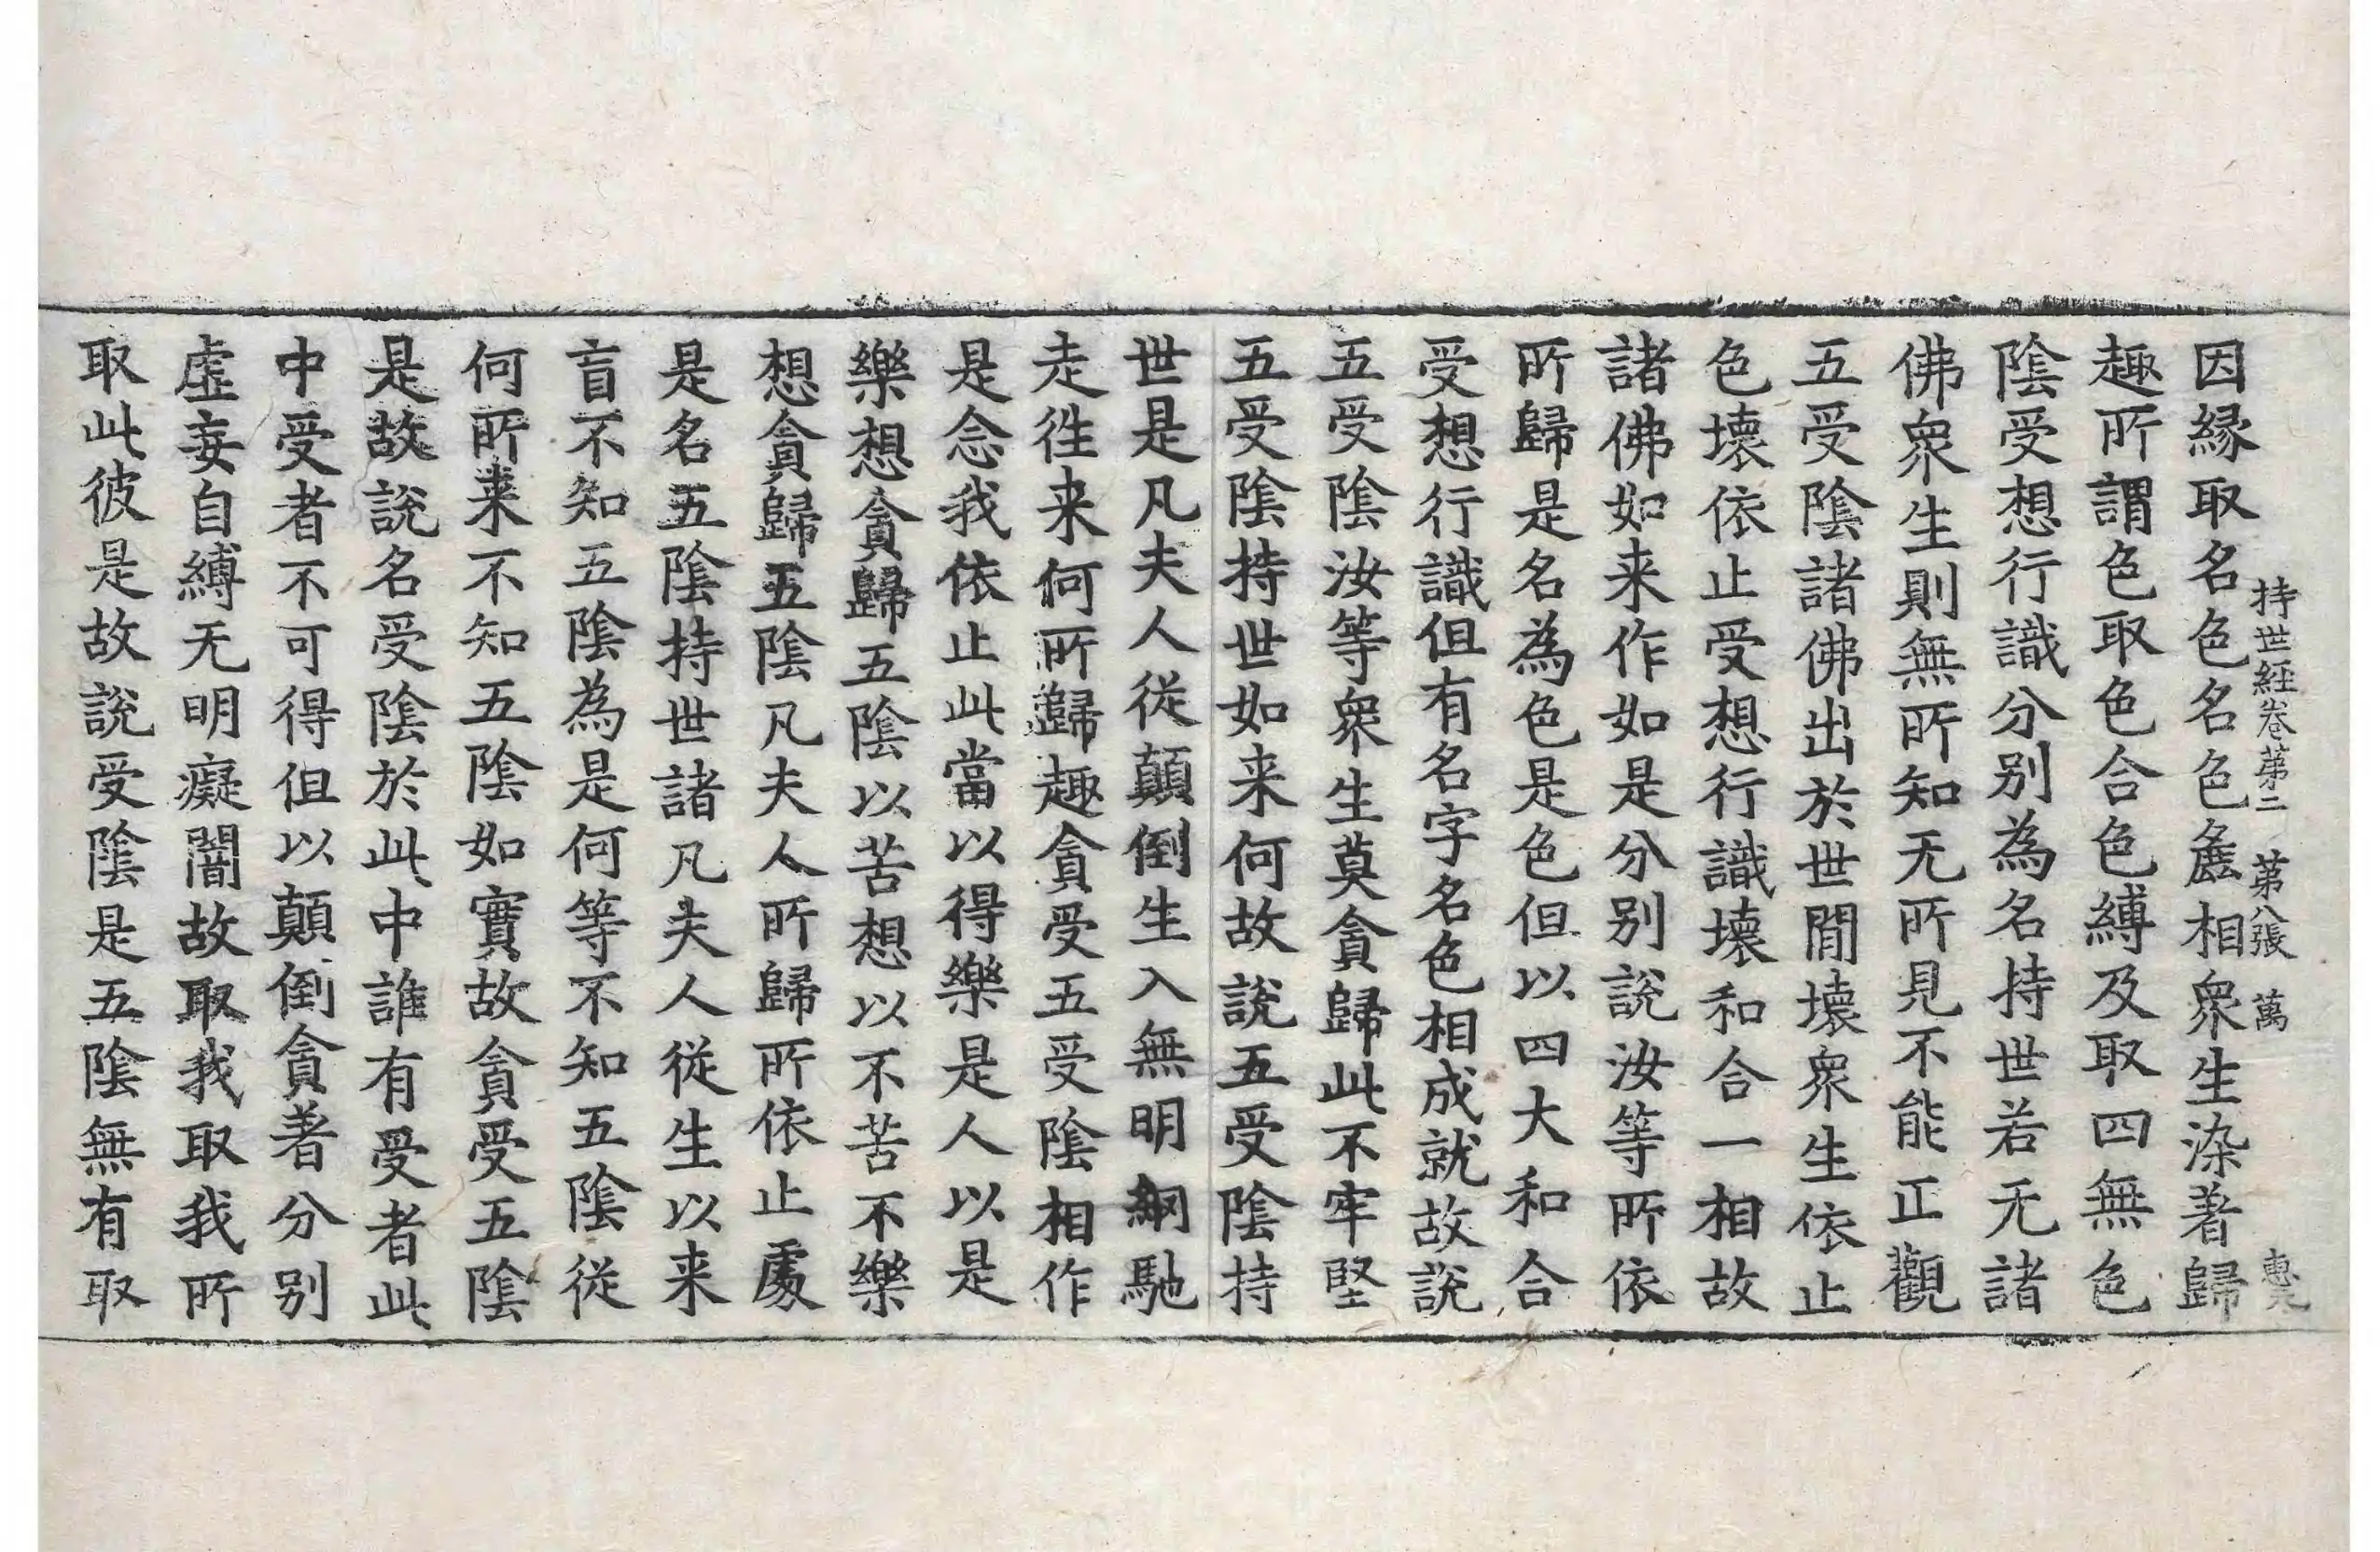 持世経巻第二 第八張 萬 惠元
因縁取名色名色麁相衆生染著歸
趣所謂色取色合色縛及取四無色
陰受想行識分别為名持世若无諸
佛衆生則無所知无所見不能正觀
五受陰諸佛出於世間壞衆生依止
色壞依止受想行識壞和合一相故
諸佛如来作如是分别說汝等所依
所歸是名為色是色但以四大和合
受想行識但有名字名色相成就故說
五受陰汝等衆生莫貪歸此不牢堅
五受陰持世如来何故說五受陰持
世是凡夫人従顛倒生入無明網馳
走徃来何所歸趣貪受五受陰相作
是念我依止此當以得樂是人以是
樂想貪歸五陰以苦想以不苦不樂
想貪歸五陰凡夫人所歸所依止處
是名五陰持世諸凡夫人従生以来
盲不知五陰為是何等不知五陰従
何所来不知五陰如實故貪受五陰
是故說名受陰於此中誰有受者此
中受者不可得但以顛倒貪著分别
虛妄自縛无明癡闇故取我取我所
取此彼是故說受陰是五陰無有取